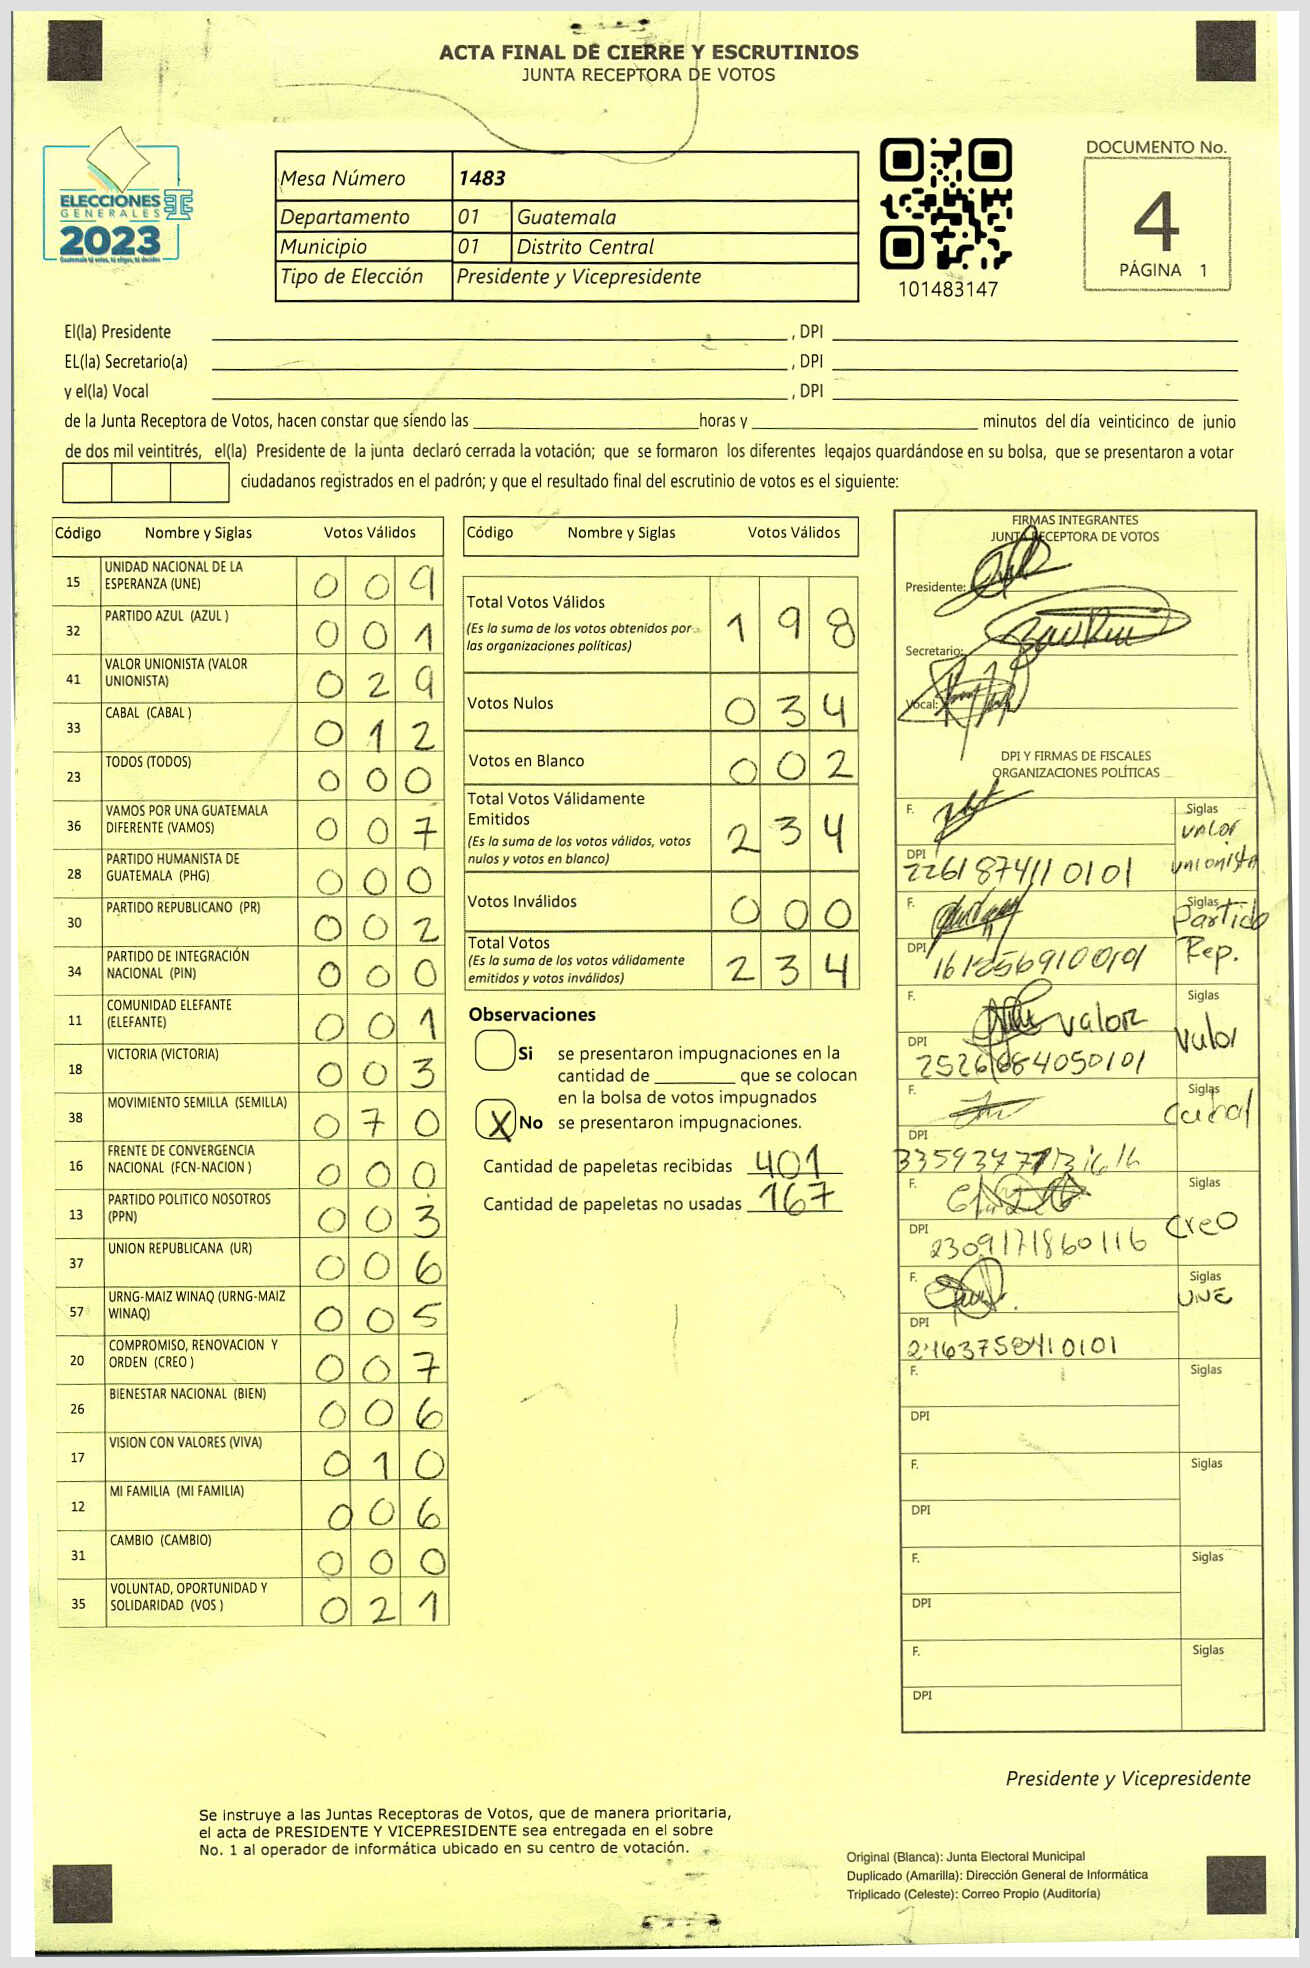 ACTA FINAL DE CIERRE Y ESCRUTINIOS
JUNTA RECEPTORA DE VOTOS
ELECCIONES
GENERALES
2023
Guatemala tú votas, tú eliges, tú decides
Mesa Número 1483
Departamento 01 Guatemala
Municipio 01 Distrito Central
Tipo de Elección Presidente y Vicepresidente
101483147
DOCUMENTO No.
4
PÁGINA 1
El(la) Presidente , DPI
EL(la) Secretario(a) , DPI
y el(la) Vocal , DPI
de la Junta Receptora de Votos, hacen constar que siendo las horas y minutos del día veinticinco de junio
de dos mil veintitrés, el(la) Presidente de la junta declaró cerrada la votación; que se formaron los diferentes legajos guardándose en su bolsa, que se presentaron a votar
ciudadanos registrados en el padrón; y que el resultado final del escrutinio de votos es el siguiente:
Código Nombre y Siglas Votos Válidos
15 UNIDAD NACIONAL DE LA
ESPERANZA (UNE) 0 0 9
32 PARTIDO AZUL (AZUL ) 0 0 1
41 VALOR UNIONISTA (VALOR
UNIONISTA) 0 2 9
33 CABAL (CABAL ) 0 1 2
23 TODOS (TODOS) 0 0 0
36 VAMOS POR UNA GUATEMALA
DIFERENTE (VAMOS) 0 0 7
28 PARTIDO HUMANISTA DE
GUATEMALA (PHG) 0 0 0
30 PARTIDO REPUBLICANO (PR) 0 0 2
34 PARTIDO DE INTEGRACIÓN
NACIONAL (PIN) 0 0 0
11 COMUNIDAD ELEFANTE
(ELEFANTE) 0 0 1
18 VICTORIA (VICTORIA) 0 0 3
38 MOVIMIENTO SEMILLA (SEMILLA) 0 7 0
16 FRENTE DE CONVERGENCIA
NACIONAL (FCN-NACION ) 0 0 0
13 PARTIDO POLITICO NOSOTROS
(PPN) 0 0 3
37 UNION REPUBLICANA (UR) 0 0 6
57 URNG-MAIZ WINAQ (URNG-MAIZ
WINAQ) 0 0 5
20 COMPROMISO, RENOVACION Y
ORDEN (CREO ) 0 0 7
26 BIENESTAR NACIONAL (BIEN) 0 0 6
17 VISION CON VALORES (VIVA) 0 1 0
12 MI FAMILIA (MI FAMILIA) 0 0 6
31 CAMBIO (CAMBIO) 0 0 0
35 VOLUNTAD, OPORTUNIDAD Y
SOLIDARIDAD (VOS ) 0 2 1
Código Nombre y Siglas Votos Válidos
Total Votos Válidos 1 9 8
(Es la suma de los votos obtenidos por
las organizaciones políticas)
Votos Nulos 0 3 4
Votos en Blanco 0 0 2
Total Votos Válidamente
Emitidos 2 3 4
(Es la suma de los votos válidos, votos
nulos y votos en blanco)
Votos Inválidos 0 0 0
Total Votos 2 3 4
(Es la suma de los votos válidamente
emitidos y votos inválidos)
Observaciones
Si se presentaron impugnaciones en la
cantidad de que se colocan
en la bolsa de votos impugnados
X No se presentaron impugnaciones.
Cantidad de papeletas recibidas 401
Cantidad de papeletas no usadas 167
FIRMAS INTEGRANTES
JUNTA RECEPTORA DE VOTOS
Presidente:
Secretario:
Vocal:
DPI Y FIRMAS DE FISCALES
ORGANIZACIONES POLÍTICAS
F. Siglas
valor
unionista
DPI
2261874110101
F. Siglas
Partido
Rep.
DPI
F. valor Siglas
valor
DPI
F. Siglas
Cabal
DPI
F. Siglas
creo
DPI
2309171860116
F. Siglas
UNE
DPI
2163758410101
F. Siglas
DPI
F. Siglas
DPI
F. Siglas
DPI
F. Siglas
DPI
Presidente y Vicepresidente
Se instruye a las Juntas Receptoras de Votos, que de manera prioritaria,
el acta de PRESIDENTE Y VICEPRESIDENTE sea entregada en el sobre
No. 1 al operador de informática ubicado en su centro de votación.
Original (Blanca): Junta Electoral Municipal
Duplicado (Amarilla): Dirección General de Informática
Triplicado (Celeste): Correo Propio (Auditoría)